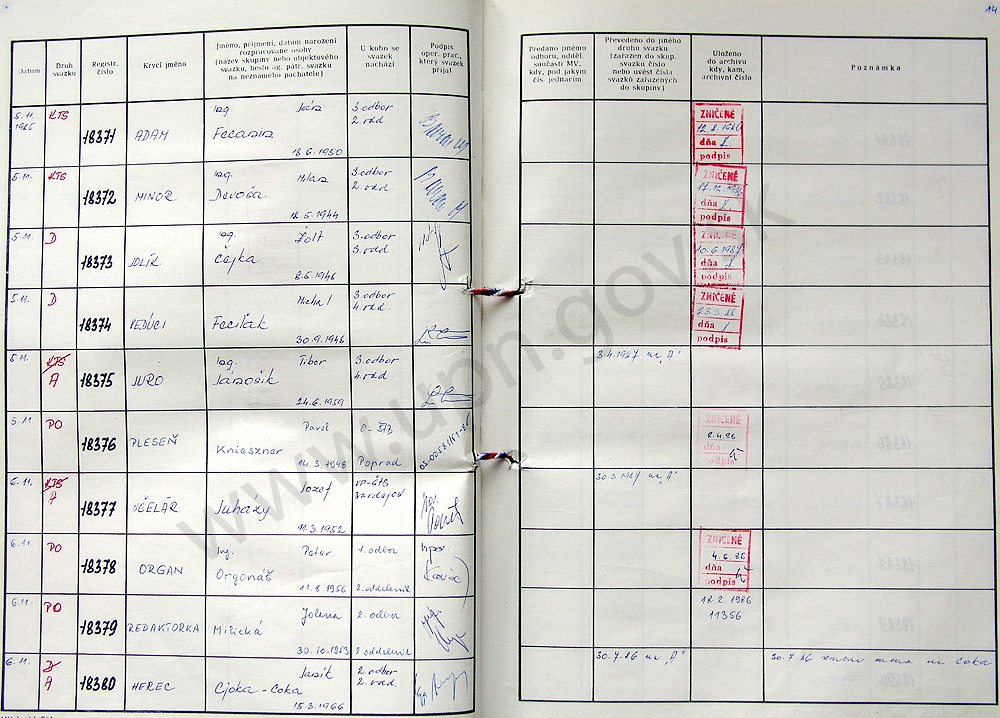 14
Datum
Druh
svazku
Registr.
číslo
Krycí jméno
Jméno, příjmení, datum narození
rozpracované osoby
(název skupiny nebo objektového
svazku, heslo ag. pátr. svazku
na neznámého pachatele)
U koho se
svazek
nachází
Podpis
oper. prac.,
který svazek
přijal
Předáno jinému
odboru, odděl.
součásti MV,
kdy, pod jakým
čís. jednacím
Převedeno do jiného
druhu svazku
(zařazen do skup.
svazku číslo
nebo uvést čísla
svazků zařazených
do skupiny)
Uloženo
do archivu
kdy, kam,
archivní číslo
Poznámka
5.11.
1985
KTS
18371
ADAM
Ing.
18.6.1950
3.odbor
2.odd
ZNIČENÉ
dňa
podpis
5.11.
KTS
18372
MINOR
Ing.
Milan
Devoša
12.5.1944
3.odbor
2.odd
ZNIČENÉ
17.12.1986
dňa
podpis
5.11.
D
18373
JOLÍK
Ing.
Žolt
Čajka
8.5.1946
3.odbor
3.odd
ZNIČENÉ
10.6.1987
dňa
podpis
5.11.
D
18374
VEDÚCI
Michal
30.9.1946
3.odbor
4.odd
ZNIČENÉ
23.3.88
dňa
podpis
5.11.
KTS
A
18375
JURO
Ing.
Tibor
Jánošík
24.6.1959
3.odbor
4.odd
3.4.1987 na "A"
5.11.
PO
18376
PLESEŇ
Pavol
Knieszner
14.3.1948
O-ŠTB
Poprad
ZNIČENÉ
8.4.86
dňa
podpis
6.11.
KTS
A
18377
VČELÁR
Jozef
Juhászy
11.3.1952
30.3.1987 na "A"
6.11.
PO
18378
ORGAN
Ing.
Peter
Orgonáš
11.8.1956
1.odbor
2.oddelenie
ZNIČENÉ
4.6.86
dňa
podpis
6.11.
PO
18379
REDAKTORKA
Jolana
Milická
30.10.1963
2.odbor
2.oddelenie
18.2.1986
11356
6.11.
D
A
18380
HEREC
Cjoka-Coka
15.3.1966
2.odbor
2.odd.
30.7.86 na "A"
30.7.86 zmena mena na Coka
www.upn.gov.sk